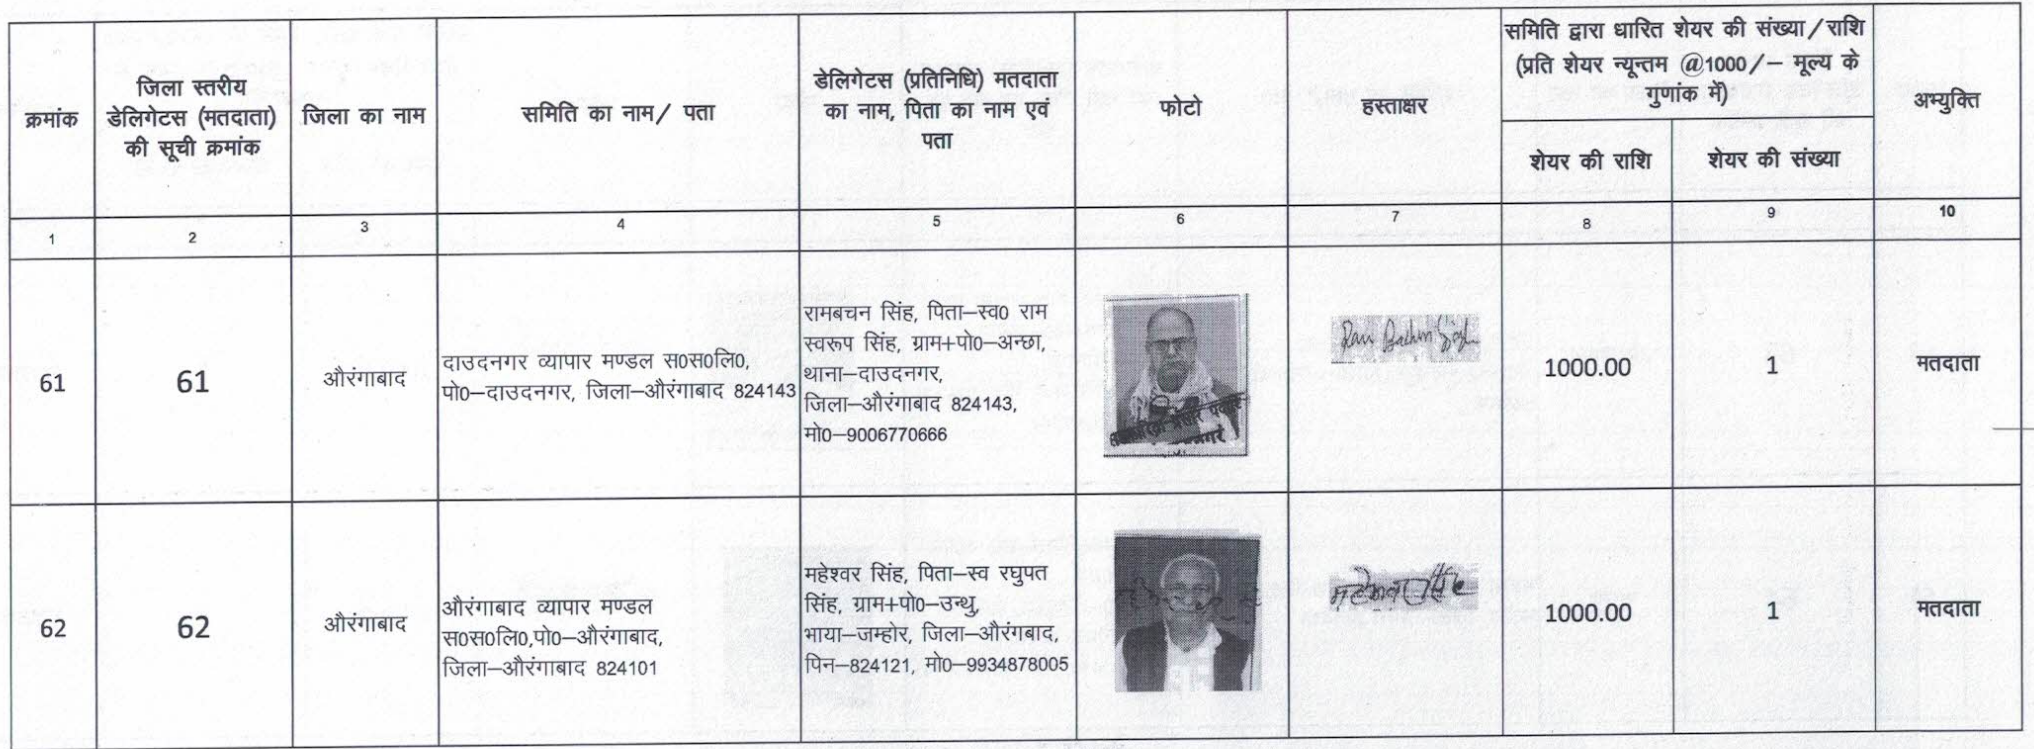 क्रमांक
जिला स्तरीय
डेलिगेटस (मतदाता)
की सूची क्रमांक
जिला का नाम
समिति का नाम/ पता
डेलिगेटस (प्रतिनिधि) मतदाता
का नाम, पिता का नाम एवं
पता
फोटो
हस्ताक्षर
समिति द्वारा धारित शेयर की संख्या/राशि
(प्रति शेयर न्यूनतम @1000/– मूल्य के
गुणांक में)
शेयर की राशि
शेयर की संख्या
अभ्युक्ति
1 2 3 4 5 6 7 8 9 10
61
61
औरंगाबाद
दाउदनगर व्यापार मण्डल स0स0लि0,
पो0–दाउदनगर, जिला–औरंगाबाद 824143
रामबचन सिंह, पिता–स्व0 राम
स्वरूप सिंह, ग्राम+पो0–अन्छा,
थाना–दाउदनगर,
जिला–औरंगाबाद 824143,
मो0–9006770666
1000.00
1
मतदाता
62
62
औरंगाबाद
औरंगाबाद व्यापार मण्डल
स0स0लि0,पो0–औरंगाबाद,
जिला–औरंगाबाद 824101
महेश्वर सिंह, पिता–स्व रघुपत
सिंह, ग्राम+पो0–उन्थु,
भाया–जम्होर, जिला–औरंगबाद,
पिन–824121, मो0–9934878005
1000.00
1
मतदाता